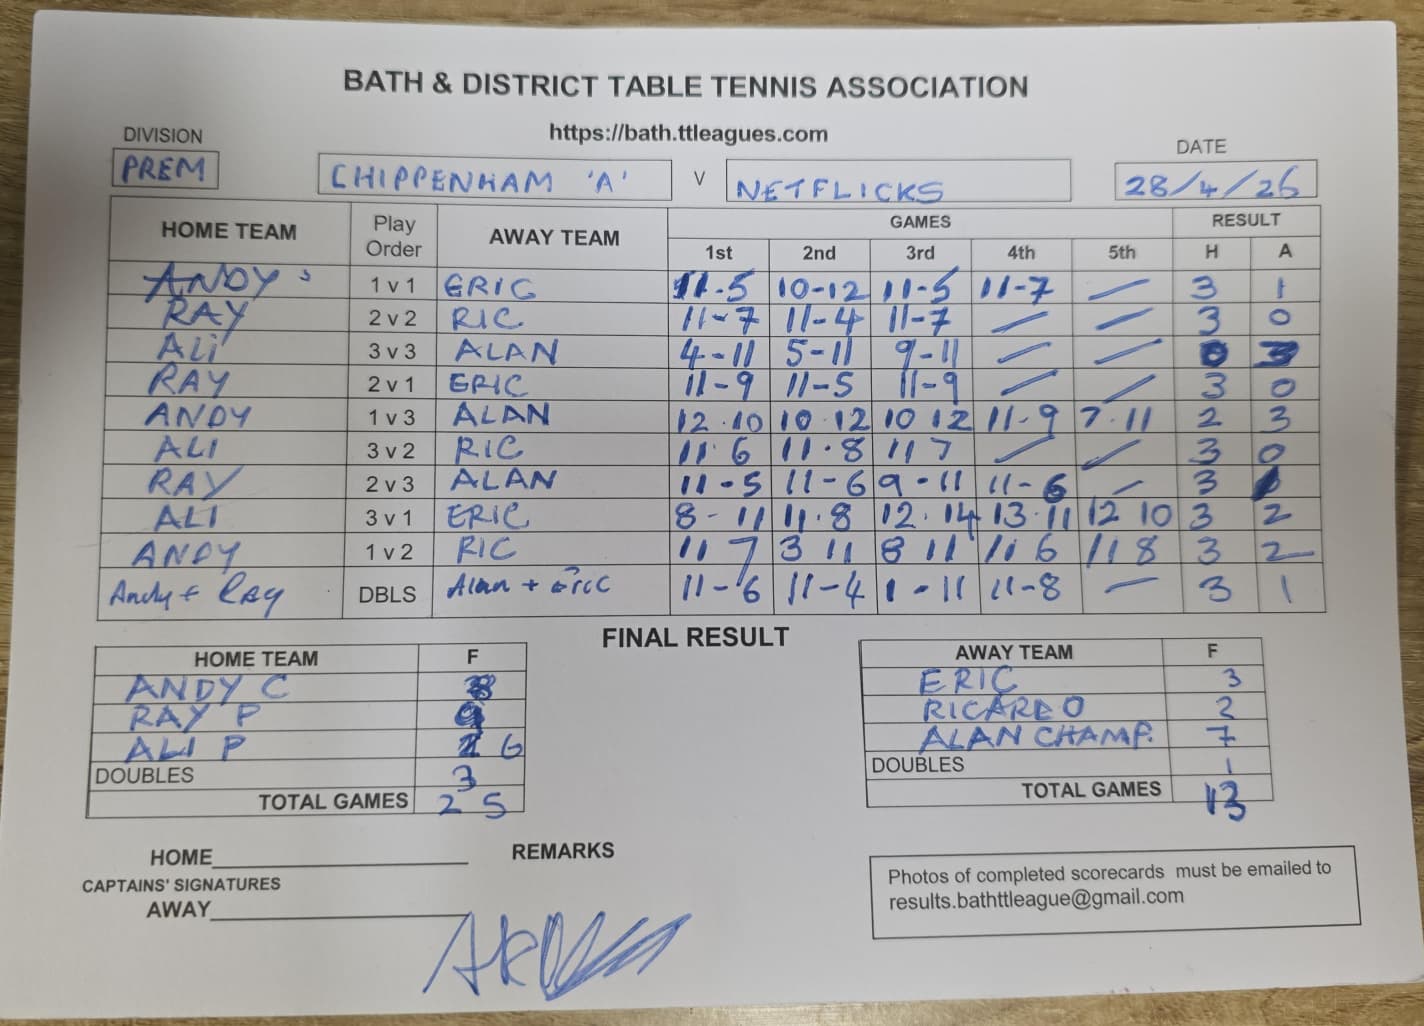 BATH & DISTRICT TABLE TENNIS ASSOCIATION
https://bath.ttleagues.com
DIVISION DATE
PREM CHIPPENHAM 'A' V NETFLICKS 28/4/26
HOME TEAM Play Order AWAY TEAM GAMES RESULT
1st 2nd 3rd 4th 5th H A
ANDY 1 v 1 ERIC 11-5 10-12 11-5 11-7 — 3 1
RAY 2 v 2 RIC 11-7 11-4 11-7 — — 3 0
ALi 3 v 3 ALAN 4-11 5-11 9-11 — — 0 3
RAY 2 v 1 ERIC 11-9 11-5 11-9 — — 3 0
ANDY 1 v 3 ALAN 12.10 10.12 10 12 11-9 7-11 2 3
ALI 3 v 2 RIC 11 6 11.8 11 7 — — 3 0
RAY 2 v 3 ALAN 11-5 11-6 9-11 11-6 — 3
ALI 3 v 1 ERIC 8-11 11.8 12.14 13.11 12 10 3 2
ANDY 1 v 2 RIC 11 7 3 11 8 11 11 6 11 8 3 2
Andy + Ray DBLS Alan + Eric 11-6 11-4 1-11 11-8 — 3 1
FINAL RESULT
HOME TEAM F AWAY TEAM F
ANDY C 8 ERIC 3
RAY P 9 RICARDO 2
ALI P 6 ALAN CHAMP. 7
DOUBLES 3 DOUBLES 1
TOTAL GAMES 25 TOTAL GAMES 13
HOME REMARKS
CAPTAINS' SIGNATURES
AWAY
Photos of completed scorecards must be emailed to
results.bathttleague@gmail.com